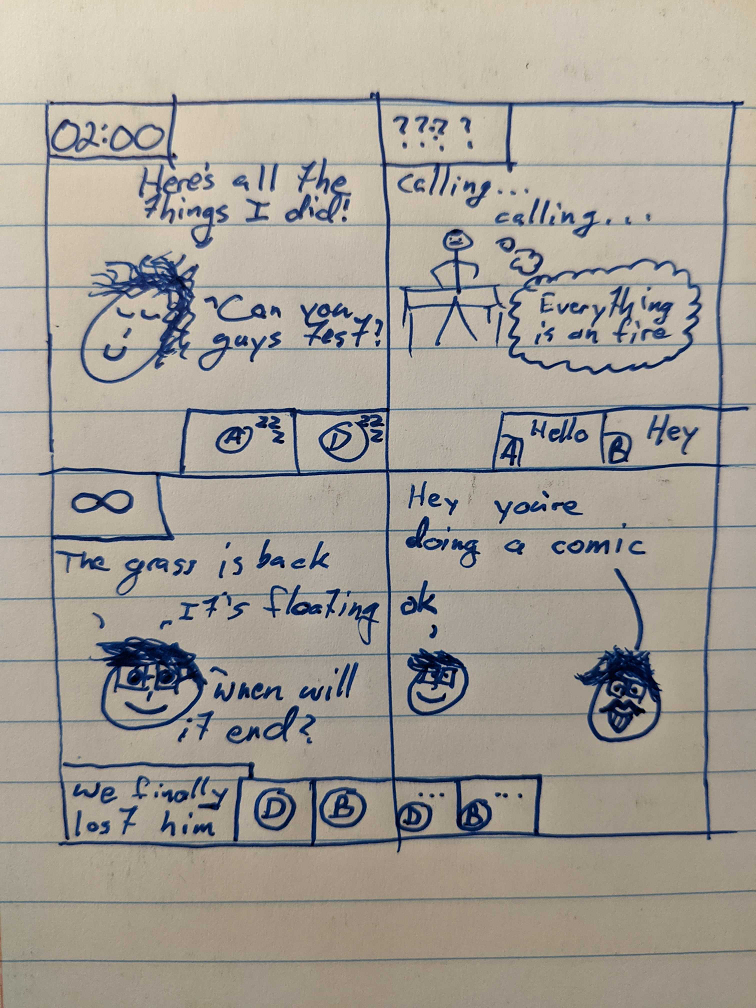 02:00
Here's all the
things I did!
Can you
guys test?
A zzz
D zzz
????
calling...
calling...
Everything
is on fire
A Hello
B Hey
∞
The grass is back
It's floating
when will
it end?
we finally
lost him
D
B
Hey you're
doing a comic
ok
D ...
B ...